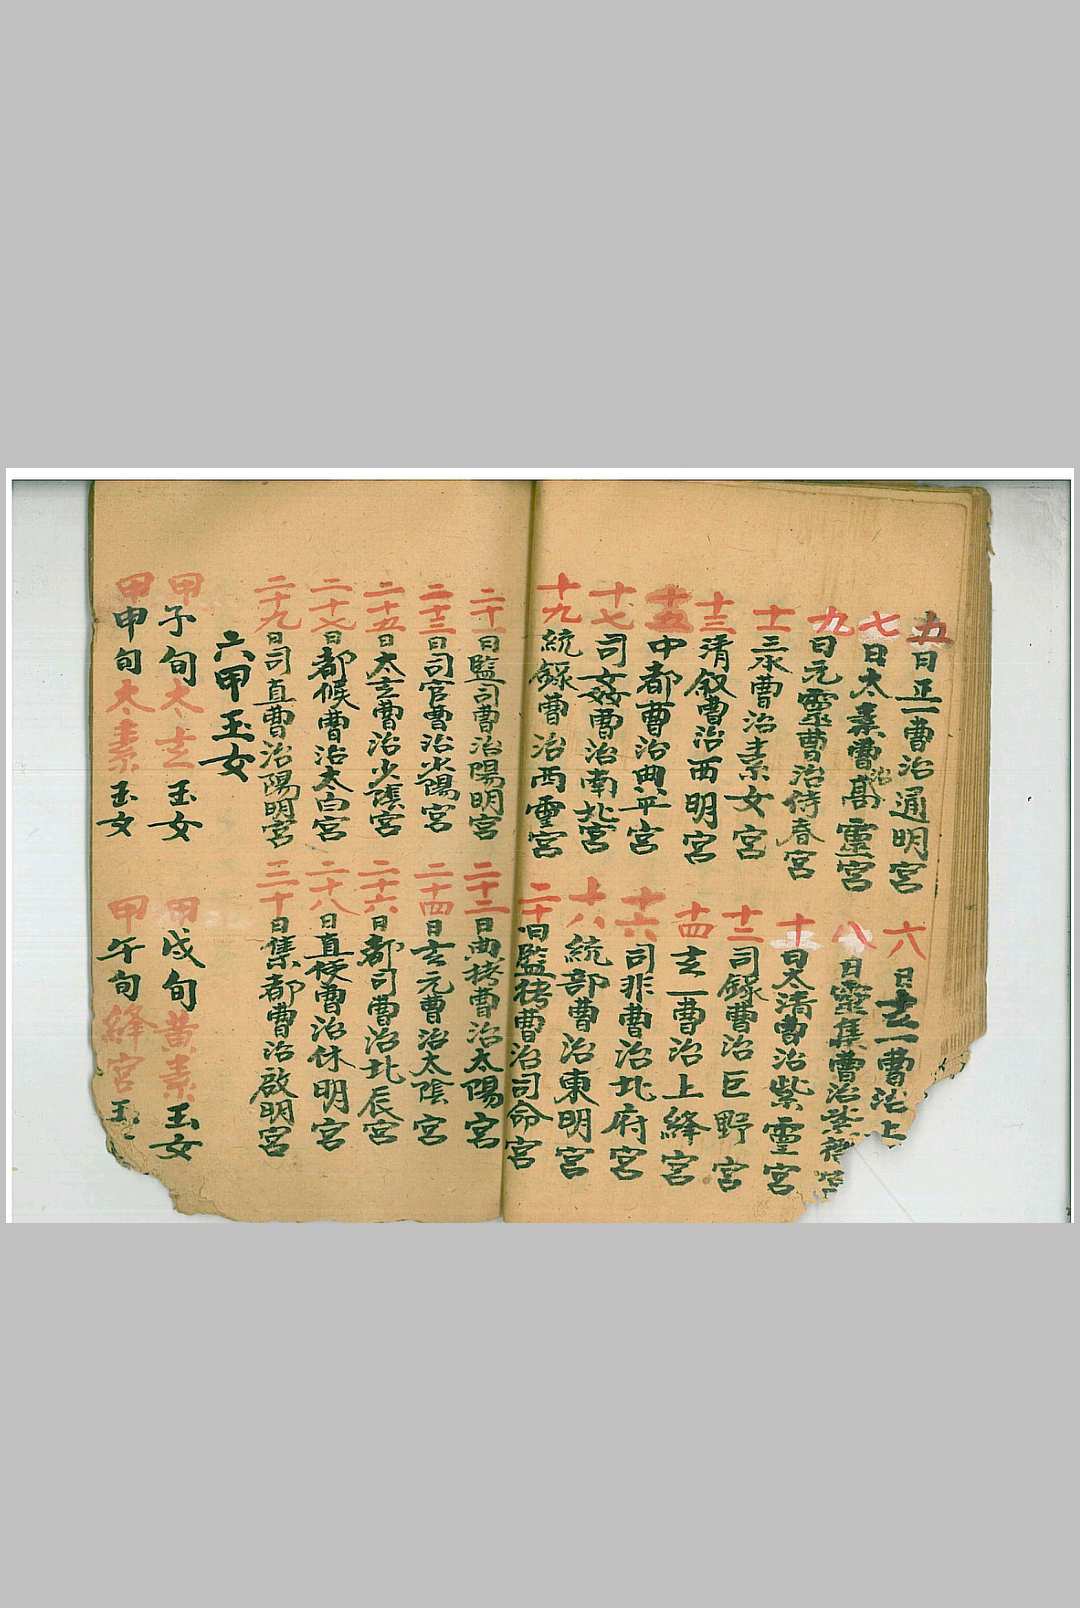 五日正一曹治通明宮
六日玄一曹治上
七日太素曹治高靈宮
八日靈集曹治
九日元靈曹治侍春宮
十日太清曹治紫靈宮
十一三水曹治素女宮
十二司錄曹治巨野宮
十三清叙曹治西明宮
十四玄一曹治上絳宮
十五中都曹治典平宮
十六司非曹治北府宮
十七司姦曹治南北宮
十八統部曹治東明宮
十九統錄曹治西靈宮
二十日監考曹治司命宮
二十一日監司曹治陽明宮
二十二日典栲曹治太陽宮
二十三日司官曹治少陽宮
二十四日玄元曹治太陰宮
二十五日太玄曹治少陰宮
二十六日都司曹治北辰宮
二十七日都候曹治太白宮
二十八日直使曹治休明宮
二十九日司直曹治陽明宮
三十日集都曹治啟明宮
六甲玉女
甲子旬太玄玉女
甲戌旬黃素玉女
甲申旬太素玉女
甲午旬絳宮玉